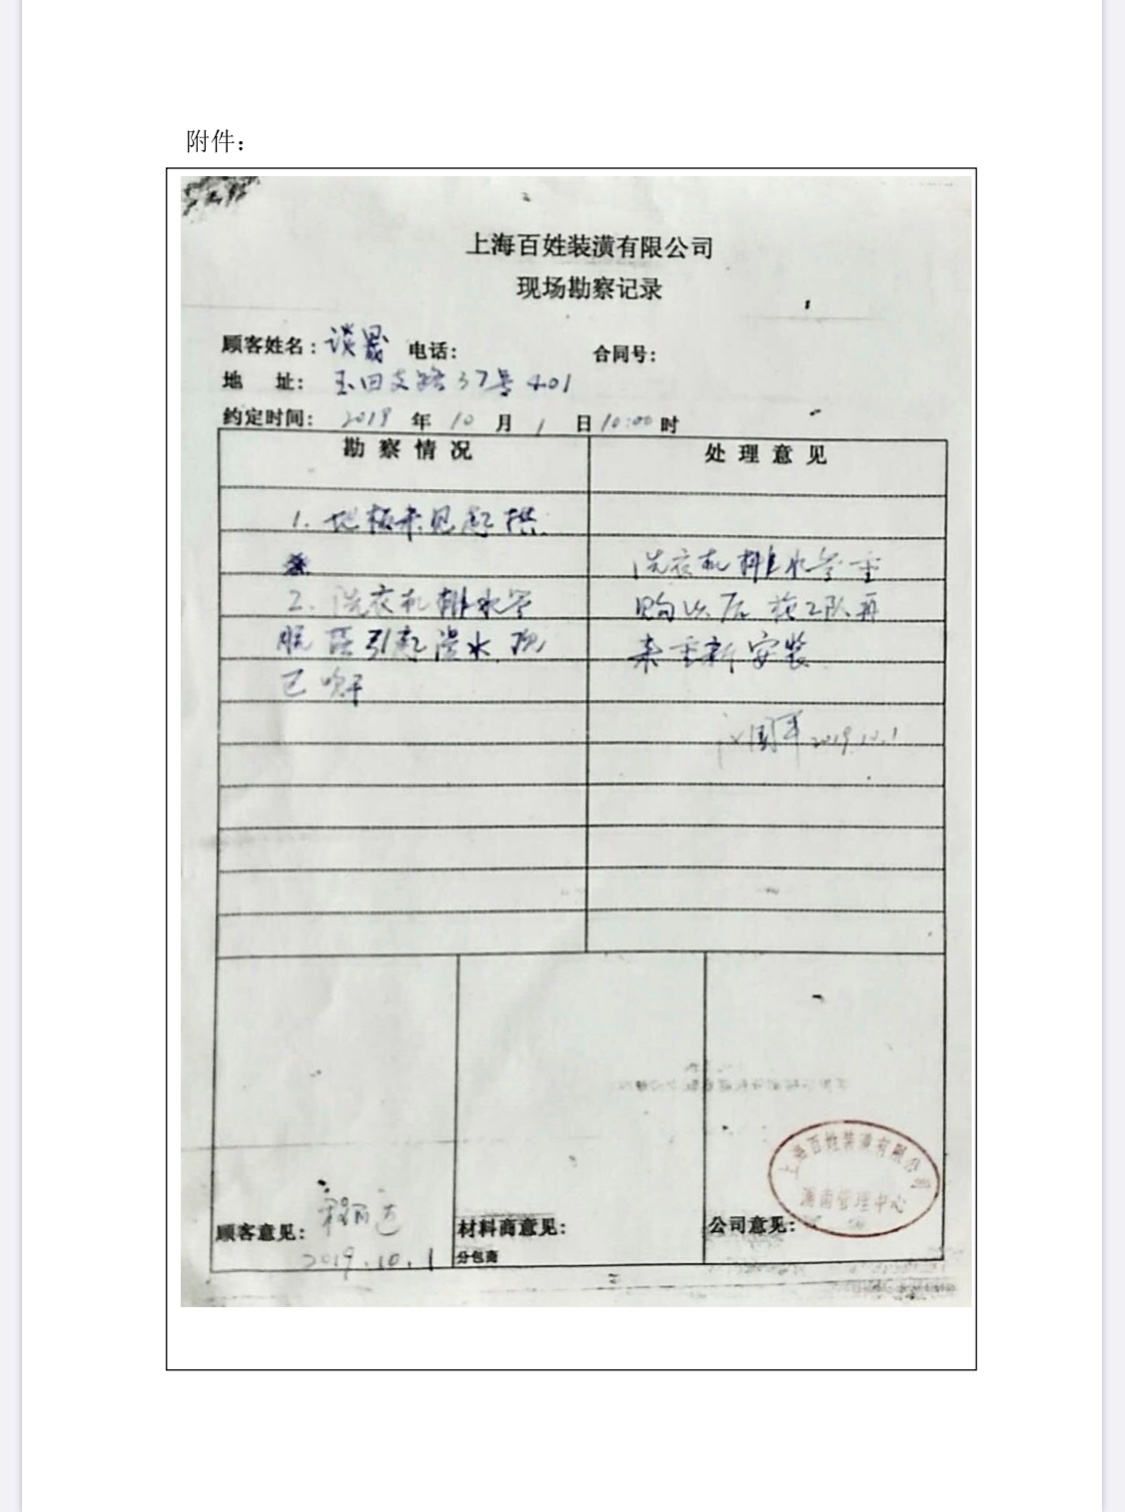 附件：
上海百姓装潢有限公司
现场勘察记录
顾客姓名：谈晟 电话： 合同号：
地 址： 玉田支路37号401
约定时间： 2019 年 10 月 1 日 10:00 时
勘察情况 处理意见
1. 地板未见起拱.
洗衣机排水管重
2. 洗衣机排水管
购以后 施工队再
脱落引起漫水 现
来重新安装
已吹干
国平 2019.10.1
上海百姓装潢有限公司
管理中心
顾客意见： 材料商意见： 公司意见：
2019.10.1 分包商